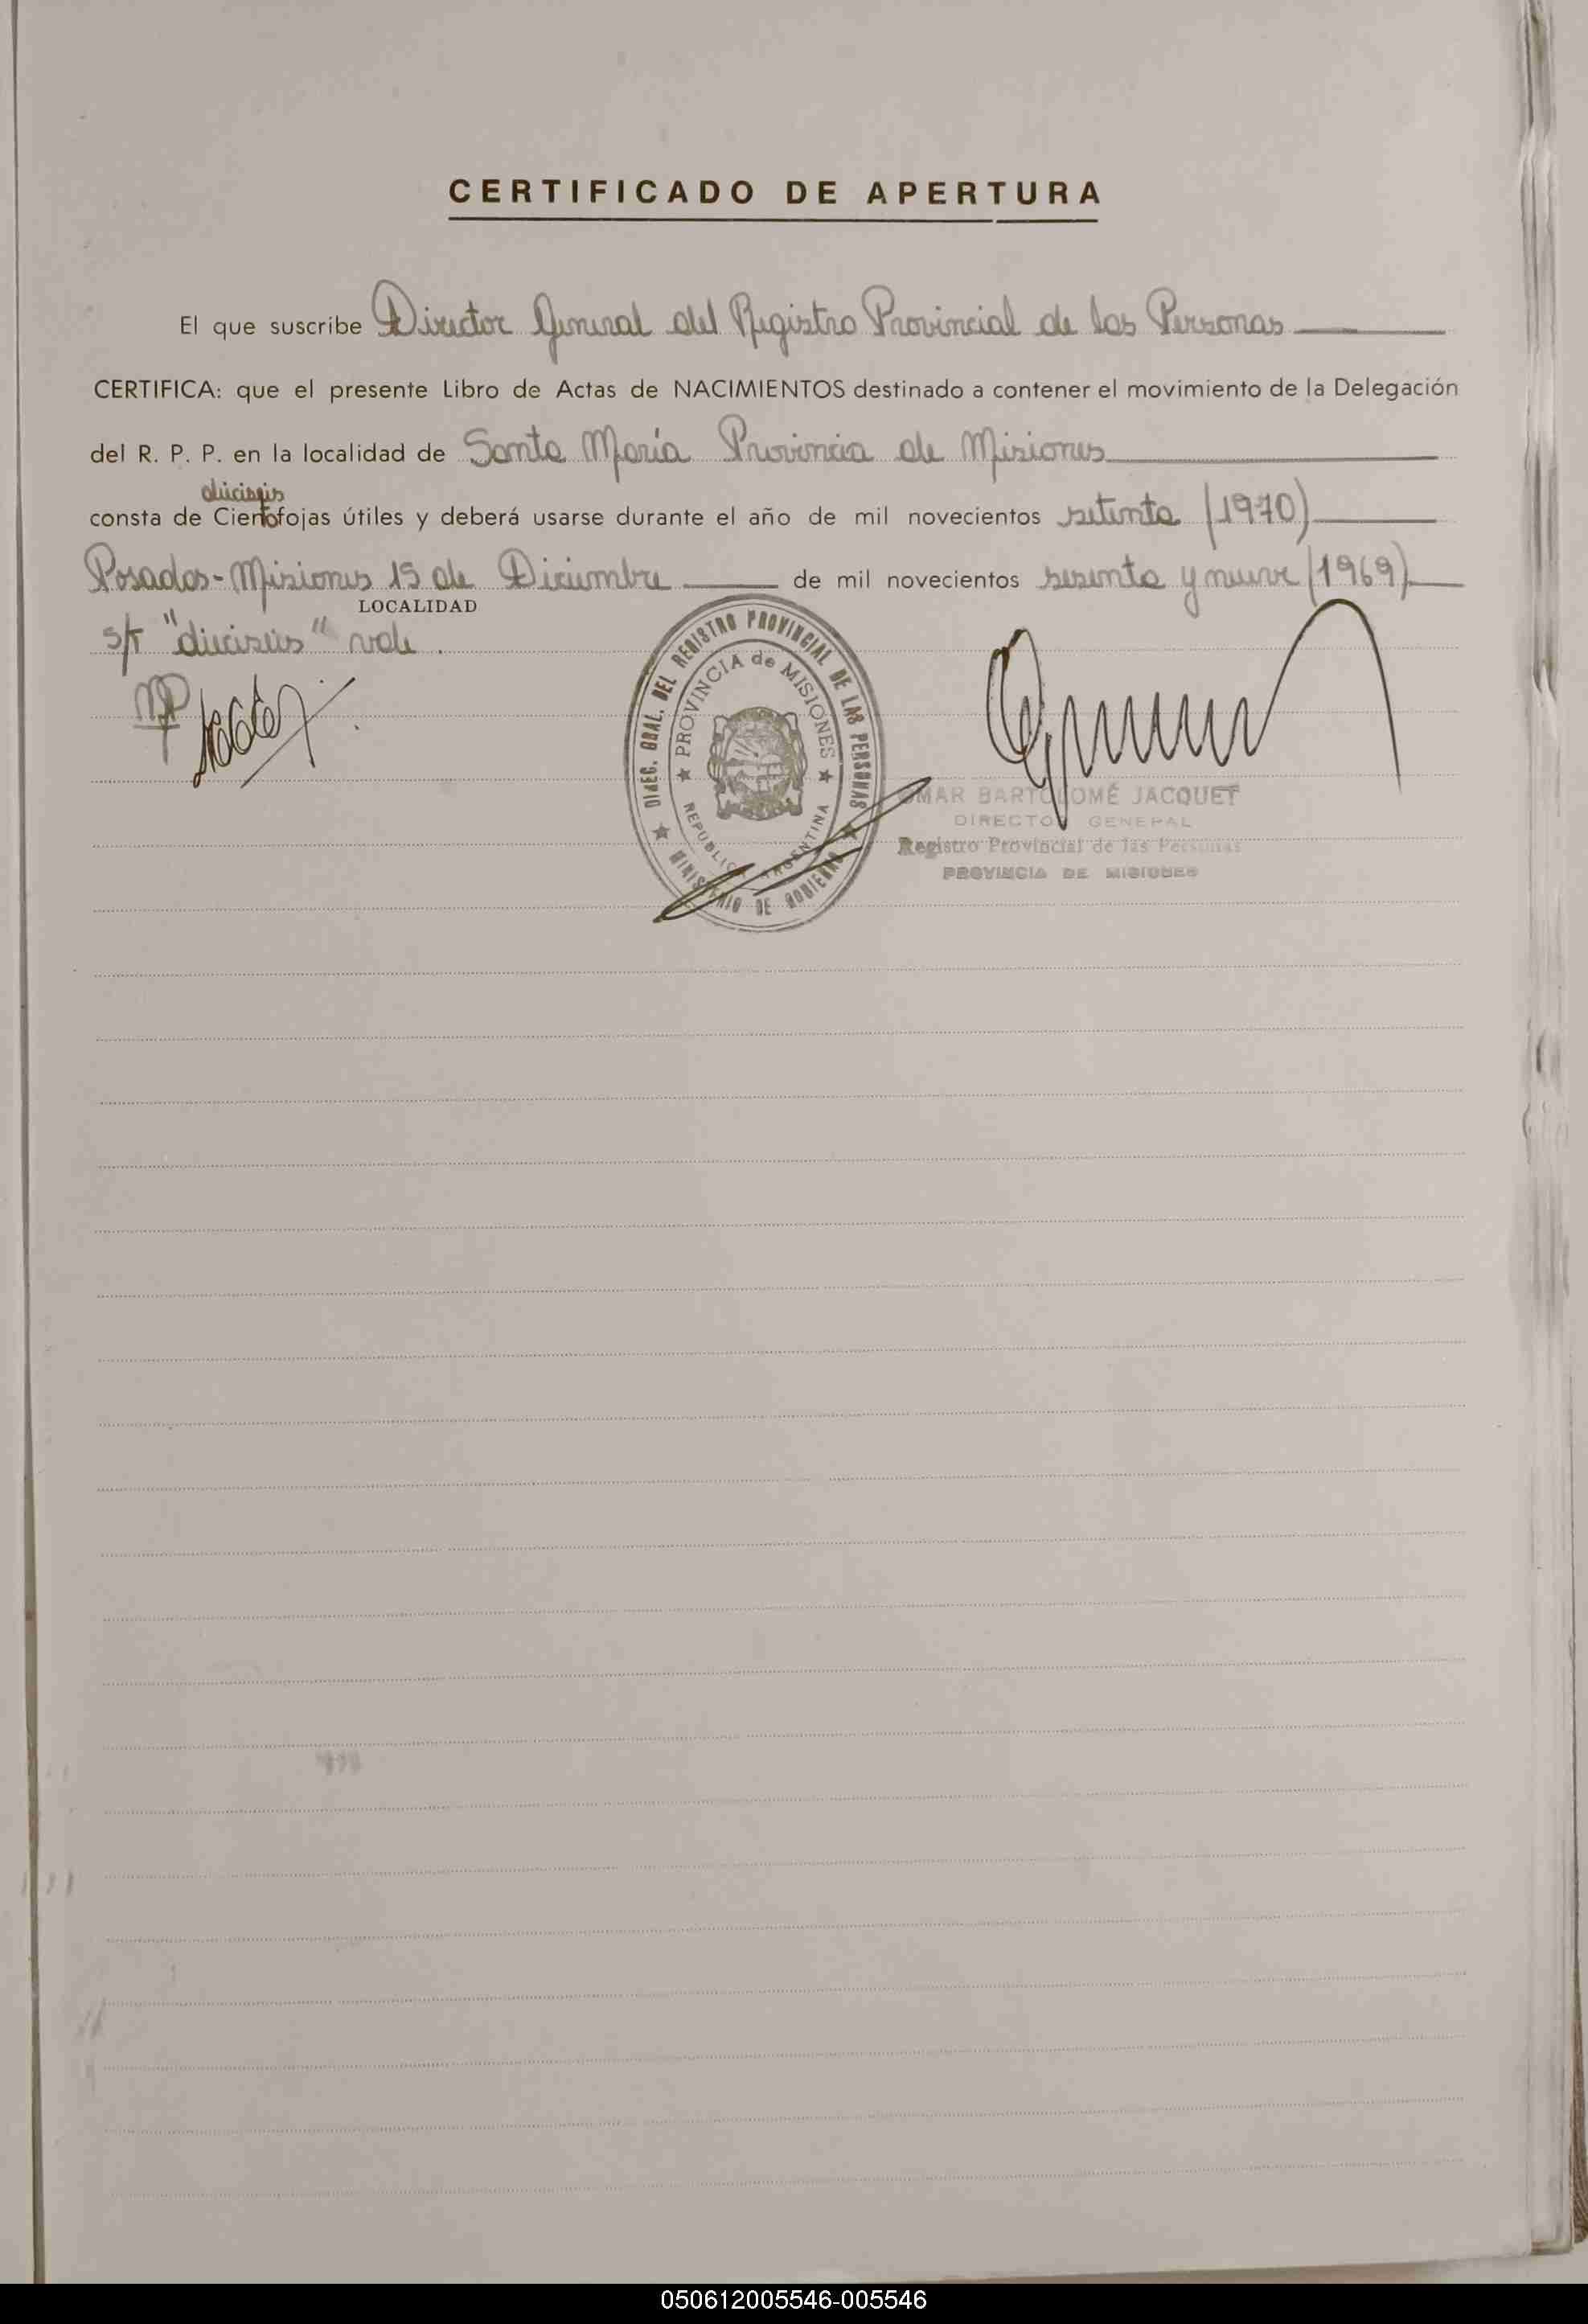 CERTIFICADO DE APERTURA
El que suscribe Director General del Registro Provincial de las Personas
CERTIFICA: que el presente Libro de Actas de NACIMIENTOS destinado a contener el movimiento de la Delegación
del R. P. P. en la localidad de Santa María Provincia de Misiones
dieciseis
consta de Ciento fojas útiles y deberá usarse durante el año de mil novecientos setenta (1970)
Posadas-Misiones 15 de Diciembre de mil novecientos sesenta y nueve (1969)
LOCALIDAD
s/r "dieciseis" vale.
DIREC. GRAL. DEL REGISTRO PROVINCIAL DE LAS PERSONAS
PROVINCIA de MISIONES
REPUBLICA ARGENTINA
MINISTERIO DE GOBIERNO
OMAR BARTOLOMÉ JACQUET
DIRECTOR GENERAL
Registro Provincial de las Personas
PROVINCIA DE MISIONES
050612005546-005546